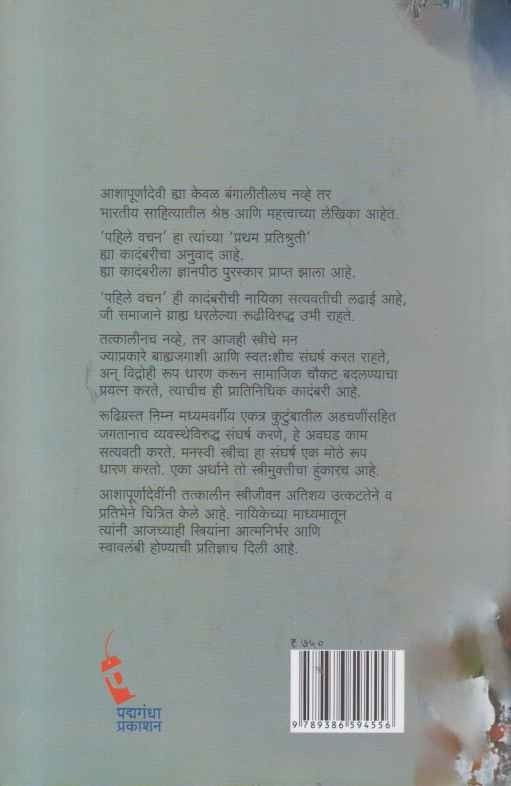 आशापूर्णादेवी ह्या केवळ बंगालीतीलच नव्हे तर
भारतीय साहित्यातील श्रेष्ठ आणि महत्त्वाच्या लेखिका आहेत.
'पहिले वचन' हा त्यांच्या 'प्रथम प्रतिश्रुती'
ह्या कादंबरीचा अनुवाद आहे.
ह्या कादंबरीला ज्ञानपीठ पुरस्कार प्राप्त झाला आहे.
'पहिले वचन' ही कादंबरीची नायिका सत्यवतीची लढाई आहे,
जी समाजाने ग्राह्य धरलेल्या रूढीविरुद्ध उभी राहते.
तत्कालीनच नव्हे, तर आजही स्त्रीचे मन
ज्याप्रकारे बाह्यजगाशी आणि स्वतःशीच संघर्ष करत राहते,
अन् विद्रोही रूप धारण करून सामाजिक चौकट बदलण्याचा
प्रयत्न करते, त्याचीच ही प्रातिनिधिक कादंबरी आहे.
रूढिग्रस्त निम्न मध्यमवर्गीय एकत्र कुटुंबातील अडचणींसहित
जगतानाच व्यवस्थेविरुद्ध संघर्ष करणे, हे अवघड काम
सत्यवती करते. मनस्वी स्त्रीचा हा संघर्ष एक मोठे रूप
धारण करतो. एका अर्थाने तो स्त्रीमुक्तीचा हुंकारच आहे.
आशापूर्णादेवींनी तत्कालीन स्त्रीजीवन अतिशय उत्कटतेने व
प्रतिभेने चित्रित केले आहे. नायिकेच्या माध्यमातून
त्यांनी आजच्याही स्त्रियांना आत्मनिर्भर आणि
स्वावलंबी होण्याची प्रतिज्ञाच दिली आहे.
₹ ७५०
पद्मगंधा
प्रकाशन
9 789386 594556